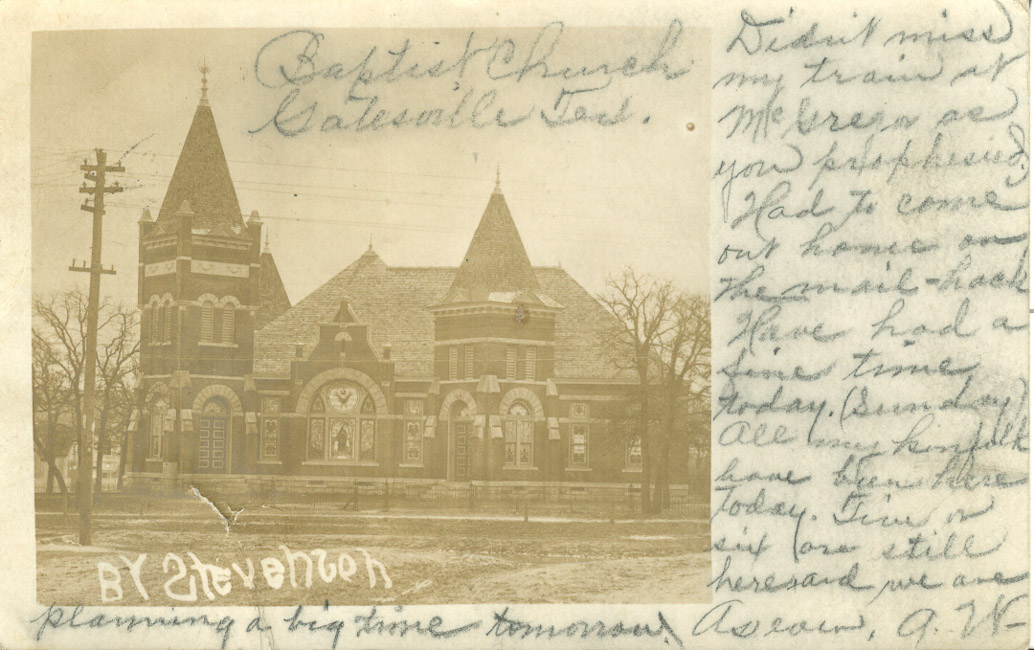 Baptist Church
Gatesville Tex.
Didn't miss
my train at
McGregor as
you prophesied.
Had to come
out home on
the mail-hack
Have had a
fine time
today. (Sunday)
All my kinfolk
have been here
today. Five or
six are still
here and we are
planning a big time tomorrow.
BY Stevenson